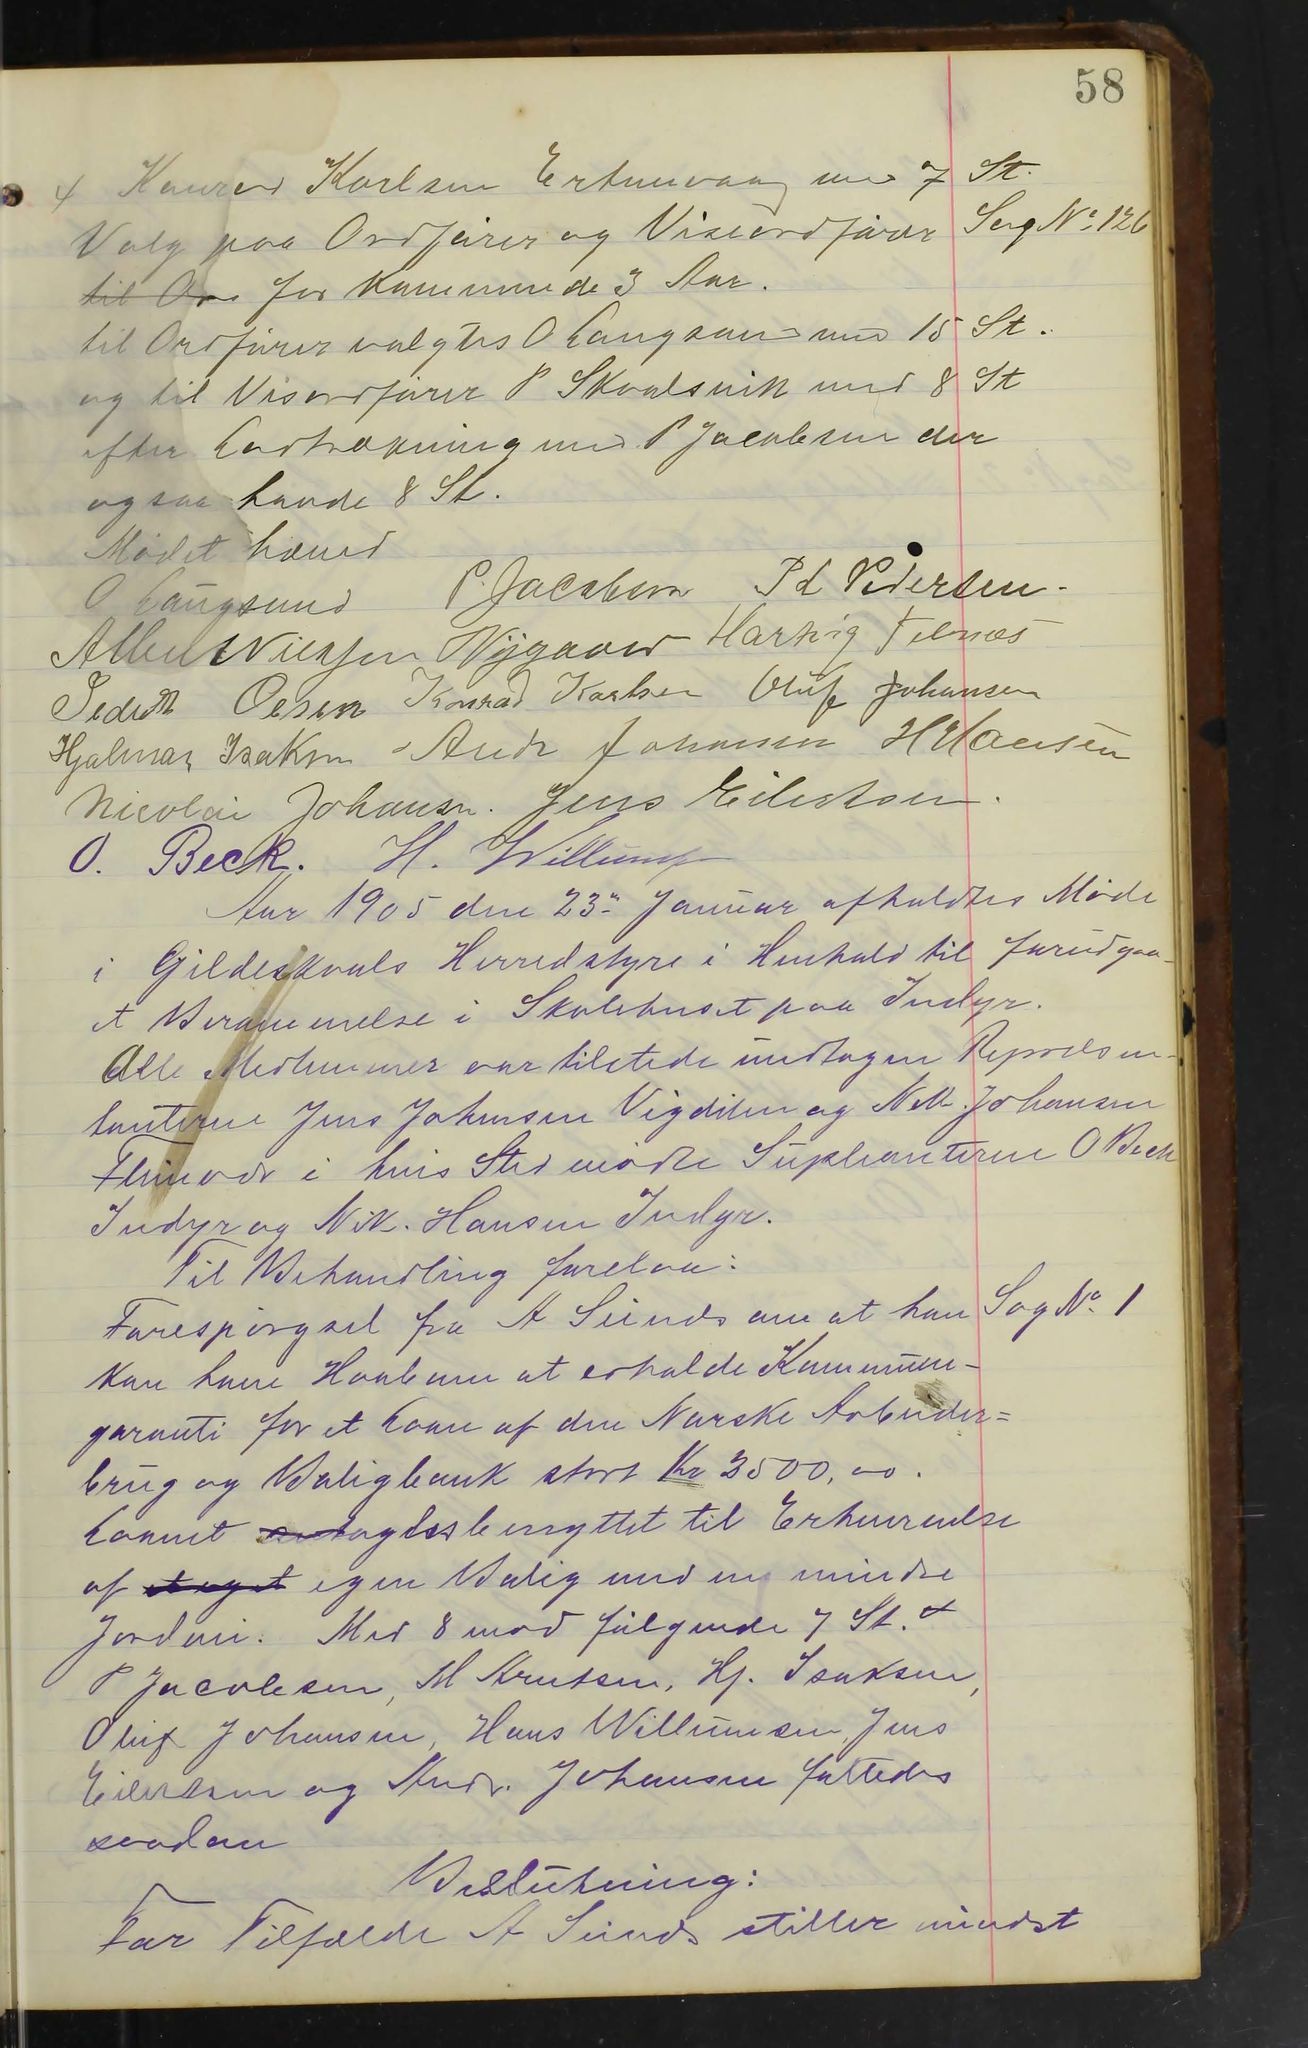 58
+ Konrad Karlsen Ertenvaag med 7 St.
Valg paa Ordfører og Viseordfører Sag No. 126
til Or for kommende 3 Aar.
til Ordfører valgtes O Langsund med 15 St.
og til Viseordfører P Skaalsvik med 8 St
efter Lodtrækning med P Jacobsen der
ogsaa havde 8 St.
Mødet hævet
O Langsund P. Jacobsen P d Pedersen.
Albert Nielsen Nygaard Hartvig Felnæs
Sedrik Olesen Konrad Karlsen Oluf Johansen
Hjalmar Isaksen Andr Johansen H Hansen
Nicolai Johansn. Jens Eilertsen.
O. Beck. H. Willums
Aar 1905 den 23de Januar afholdtes Møde
i Gildeskaals Herredstyre i Henhold til forudgaa-
et Berammelse i Skolehuset paa Indyr.
Alle Medlemmer var tilstede undtagen Repræsen-
tanterne Jens Johansen Vigdilen og Nik. Johansen
i hvis Sted mødte Supleanterne O Beck
Indyr og Nik. Hansen Indyr.
Til Behandling forelaa:
Forespørgsel fra A Sund om at han Sag No. 1
kan have Haab om at erholde Kommune-
garanti for et Laan af den Norske Arbeider=
brug og Boligbank stort Kr 3500,00.
Laanet benyttet til Erhvervelse
af et eget egen Bolig med en mindre
Jordvei. Med 8 mod følgende 7 St. +
P Jacobsen, M Arntsen, Hj. Isaksen,
Oluf Johansen, Hans Willumsen, Jens
Eilertsen og Andr. Johansen fattedes
saadan
Beslutning:
For Tilfælde A Sund stiller mindst